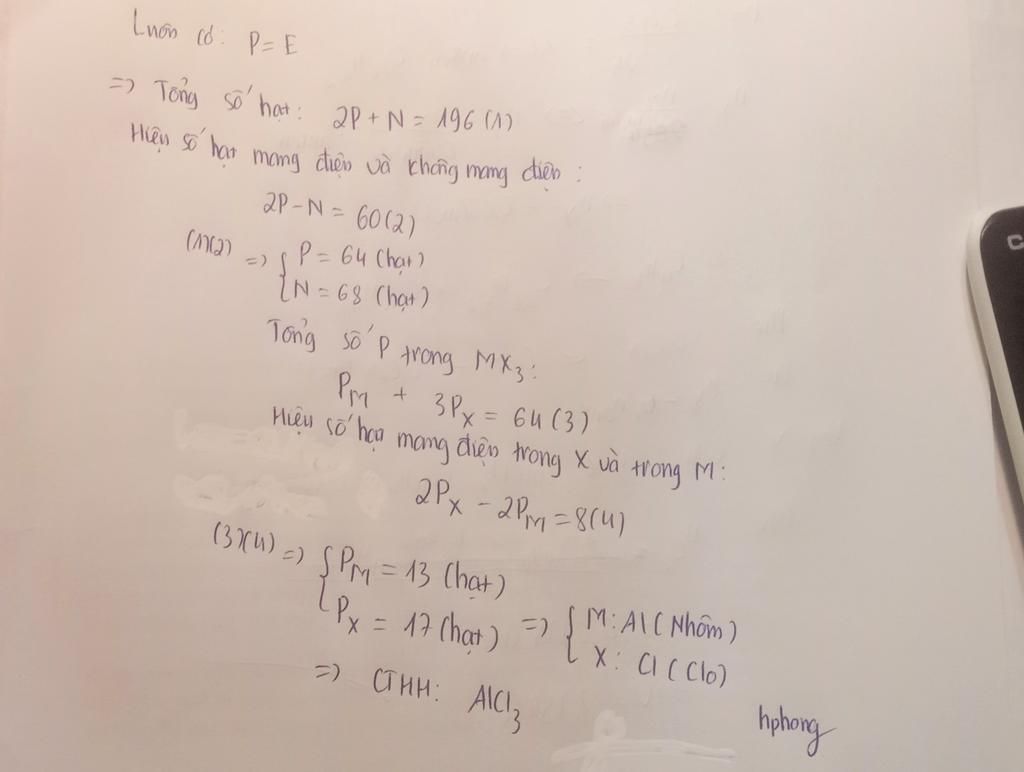 Luôn có: P = E
=> Tổng số hạt: 2P + N = 196 (1)
Hiệu số hạt mang điện và không mang điện :
2P - N = 60 (2)
(1)(2) => { P = 64 (hạt)
N = 68 (hạt)
Tổng số P trong MX₃:
P_M + 3P_X = 64 (3)
Hiệu số hạt mang điện trong X và trong M:
2P_X - 2P_M = 8 (4)
(3)(4) => { P_M = 13 (hạt)
P_X = 17 (hạt) => { M: Al (Nhôm)
X: Cl (Clo)
=> CTHH: AlCl₃
hphong